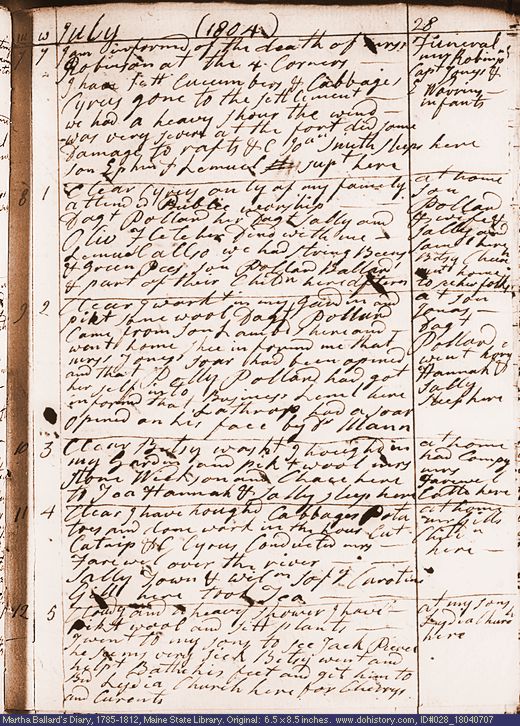 m w July (1804) 28
7 7 I am informed of the death of mrss
Robinson at the 4 Corners
I have sett Cucumbers & Cabbages
Cyrus gone to the settlement
we had a heavy shour the wind
was very severe at the fort did some
Damage to rafts &C Joa Smith sleeps here
son Ephm & Lemuel supt here
Funeral
mrs Robinsn
Capt Jones &
Warrin
infants
8 1 Clear Cyrus only of my famely
attend Publick worship
Dagt Pollard her Dagt Sally and
Oliv Fletcher Dind with me
Lemuel allso we had string Beens
& green Pees son Pollard Ballard
& part of their Childn here
at home
son
Pollard
& wife
Sally and
Lemel here
Betsy
went home
9 2 Clear I workt in my gardin and
pikt some wool Dagt Pollard
Came from son Lambd here and
went home shee informd me that
mrss Jones soar had been opined
and that Polly Pollard had got
her self into Business Leml here
informd that Lathrop had a soar
opined on his face by Dr Mann
at son
Jonas
Dagt
Pollard
went home
Hannah &
Sally
sleep here
10 3 Clear Betsy washt I hough in
my Gardin and pikt wool mrs
Stone Wilson and Chace here
to Tea Hannah & Sally sleep here
at home
had Compy
mrs
Farewel
Cotts here
11 4 Clear I have houghd Cabbages Potta
toes and done work in the hous Cut
Catnip &C Cyrus Conducted mrs
Farewel over the river
Sally Town & Wilson
Gill here took Tea
at home
mrs Gills
Childn
here
12 5 Clowdy and a heavy shower I have
pikt wool and sett plants
I went to my sons to see Jack Peirce
he seems very sick Betsy went and
helpt Bathe his feet and get him to
Bd Lydia Church here for Cherrys
and Curents
at my sons
Lydia Church
here
Martha Ballard's Diary, 1785-1812, Maine State Library. Original: 6.5 x 8.5 inches. www.dohistory.org, ID#028_18040707